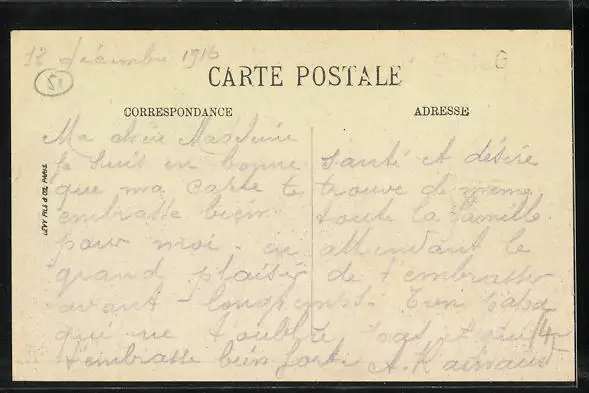 12 décembre 1916
51
CARTE POSTALE
CORRESPONDANCE
ADRESSE
LÉVY FILS & CIE, PARIS
Ma chère
Je suis en bonne santé et désire
que ma carte te trouve de même
embrasse bien toute la famille
pour moi. en attendant le
grand plaisir de t'embrasser
avant - longtemps. Ton papa
qui ne t'oublie pas et qui
t'embrasse bien fort. A.